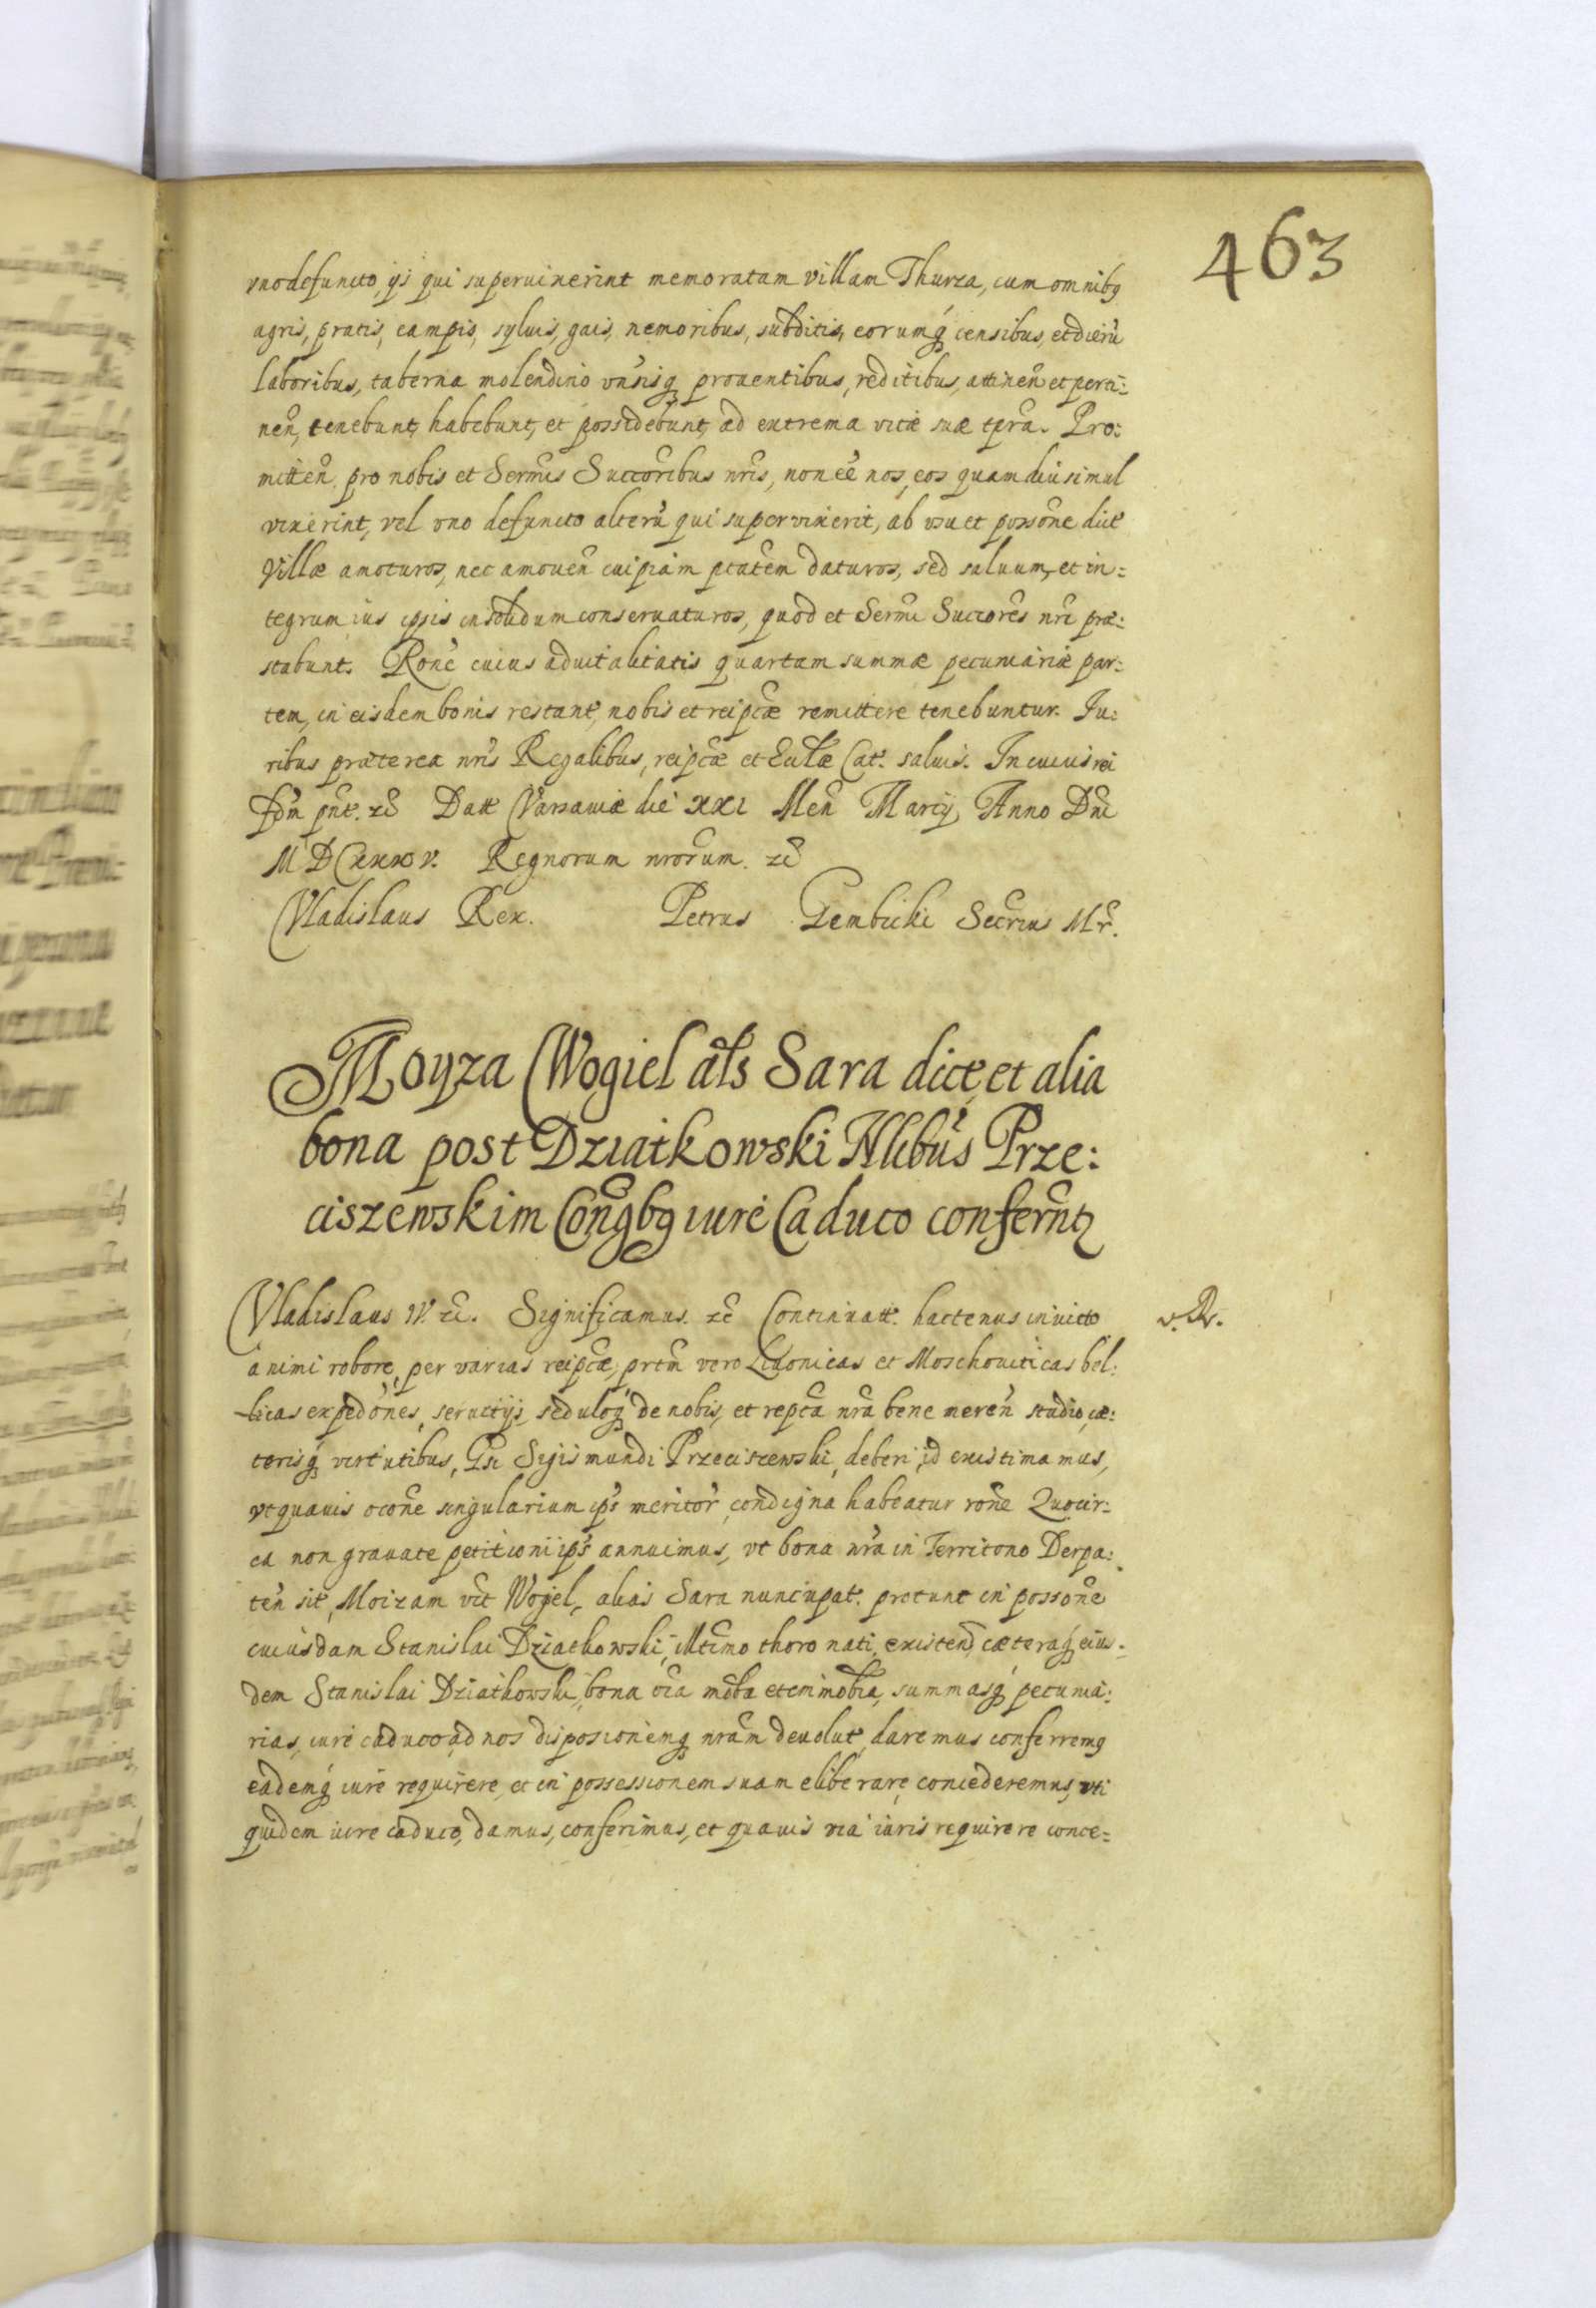 463
vno defuncto, ijs qui superuixerint memoratam villam Thurza, cum omnibq
agris, pratis, campis, syluis, gais, nemoribus, subditis, eorumq́ censibus, et dierũ
laboribus, taberna molendino vn̑sisq prouentibus, reditibus, attinen̑ et perti=
nen̑, tenebunt, habebunt, et possidebunt, ad extrema vitæ suæ tp̃ra. Pro:
mitten̑ pro nobis et Sermis̃ Succorĩbus nrĩs, non eẽ nos, eos quam diu simul
vixerint, vel vno defuncto alterũ qui supervixerit, ab vsu et possonẽ dict̃
Villæ amoturos, nec amouen̑ cuipiam ptatẽm daturos, sed saluum, et in=
tegrum ius ipsis in solidum conseruaturos, quod et Sermĩ Succorẽs nrĩ præ:
stabunt. Ronẽ cuius aduitalitatis quartam summæ pecuniariæ par:
tem, in eisdem bonis restant, nobis et reipcæ̃ remittere tenebuntur. Iu:
ribus præterea nrĩs Regalibus, reipcæ̃ et Ecclæ̃ Cat. saluis. In cuius rei
fidm̃ pn̑t. zc̃ Datt Varsauiæ die XXI Men̑ Martij Anno Dnĩ
MDCXXXV. Regnorum nrorũm. zc̃
Vladislaus Rex. Petrus Gembicki Secrĩus Mr̃.
Moyza Wogiel al̃s Sara dict̃ et alia
bona post Dziatkowski Nl̃ibus Prze:
ciszewskim Con̑gbq iure Caduco confern̑tz
Vladislaus IV. zc̃. Significamus. zc̃ Continuatt. hactenus inuicto
v. R.
animi robore, per varias reipcæ̃, prtm̃ vero Liuonicas et Moschouiticas bel:
licas expedõnes, seruitijs, seduloq́ de nobis, et repcã nrã bene meren̑ studio, cæ:
terisq́ virtutibus, Gsi Sigismundi Przeciszewski, deberi id existimamus,
vt quauis ocõne singularium ip̃s meritor̃ condigna habeatur ronẽ Quocir:
ca non grauate petitioni ip̃s annuimus, vt bona nrã in Territorio Derpa:
ten̑ sit̃, Moizam vlt̃ Wogel, alias Sara nuncupat. pretunt in possonẽ
cuiusdam Stanislai Dziatkowski, illtimo thoro nati, existen̑, cæteraq́ eius=
dem Stanislai Dziatkowski, bona oĩa mobã et immobĩa, summasq́ pecunia:
rias, iure caduco ad nos disposicionemq nrãm deuolut, daremus conferremq
eademq́ iure requirere, et in possessionem suam eliberare concederemus, vti
quidem iure caduco, damus, conferimus, et quauis via iuris requirere conce=